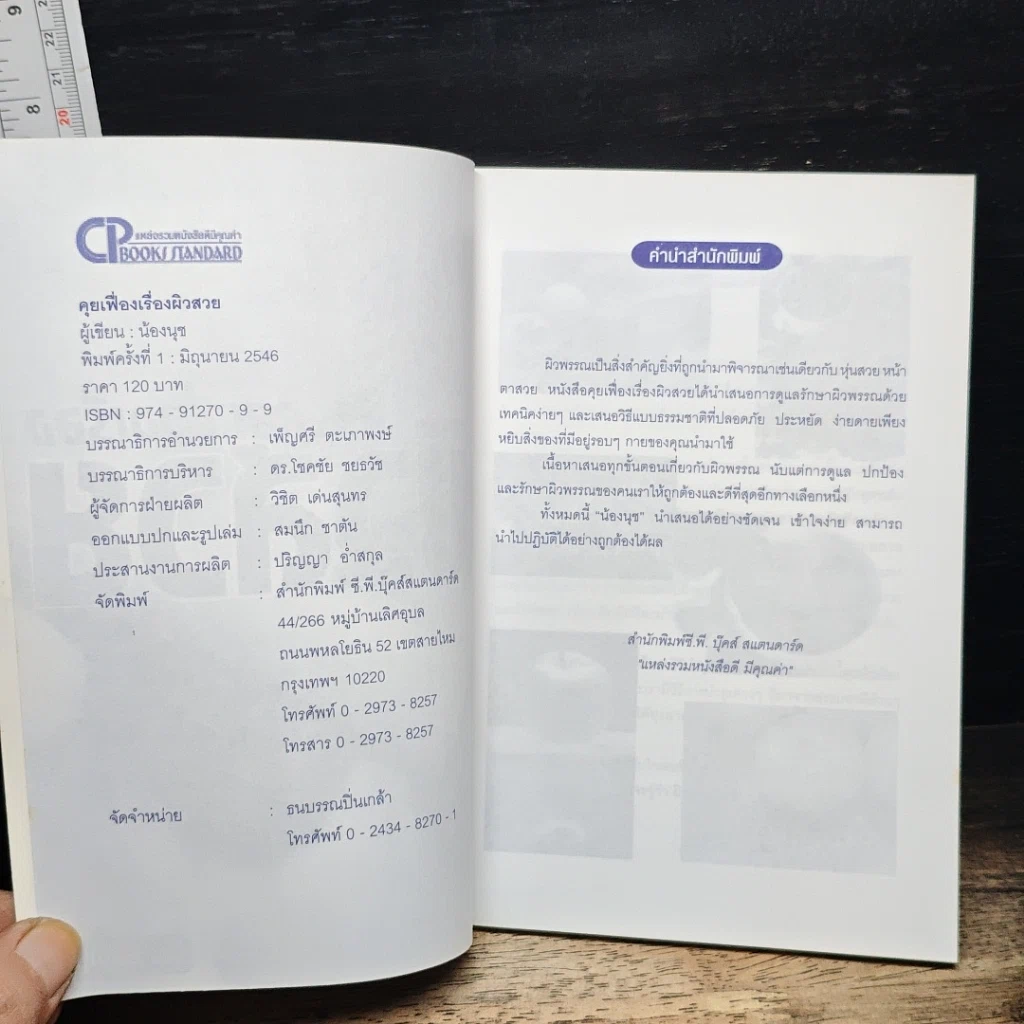 9
22
21
8
20
CP แหล่งรวมหนังสือดีมีคุณค่า
BOOKS STANDARD
คุยเฟื่องเรื่องผิวสวย
ผู้เขียน : น้องนุช
พิมพ์ครั้งที่ 1 : มิถุนายน 2546
ราคา 120 บาท
ISBN : 974 - 91270 - 9 - 9
บรรณาธิการอำนวยการ : เพ็ญศรี ตะเภาพงษ์
บรรณาธิการบริหาร : ดร.โชคชัย ชยธวัช
ผู้จัดการฝ่ายผลิต : วิชิต เด่นสุนทร
ออกแบบปกและรูปเล่ม : สมนึก ชาตัน
ประสานงานการผลิต : ปริญญา อ่ำสกุล
จัดพิมพ์ : สำนักพิมพ์ ซี.พี.บุ๊คส์สแตนดาร์ด
44/266 หมู่บ้านเลิศอุบล
ถนนพหลโยธิน 52 เขตสายไหม
กรุงเทพฯ 10220
โทรศัพท์ 0 - 2973 - 8257
โทรสาร 0 - 2973 - 8257
จัดจำหน่าย : ธนบรรณปิ่นเกล้า
โทรศัพท์ 0 - 2434 - 8270 - 1
คำนำสำนักพิมพ์
ผิวพรรณเป็นสิ่งสำคัญยิ่งที่ถูกนำมาพิจารณาเช่นเดียวกับ หุ่นสวย หน้า
ตาสวย หนังสือคุยเฟื่องเรื่องผิวสวยได้นำเสนอการดูแลรักษาผิวพรรณด้วย
เทคนิคง่ายๆ และเสนอวิธีแบบธรรมชาติที่ปลอดภัย ประหยัด ง่ายดายเพียง
หยิบสิ่งของที่มีอยู่รอบๆ กายของคุณนำมาใช้
เนื้อหาเสนอทุกขั้นตอนเกี่ยวกับผิวพรรณ นับแต่การดูแล ปกป้อง
และรักษาผิวพรรณของคนเราให้ถูกต้องและดีที่สุดอีกทางเลือกหนึ่ง
ทั้งหมดนี้ "น้องนุช" นำเสนอได้อย่างชัดเจน เข้าใจง่าย สามารถ
นำไปปฏิบัติได้อย่างถูกต้องได้ผล
สำนักพิมพ์ซี.พี. บุ๊คส์ สแตนดาร์ด
"แหล่งรวมหนังสือดี มีคุณค่า"